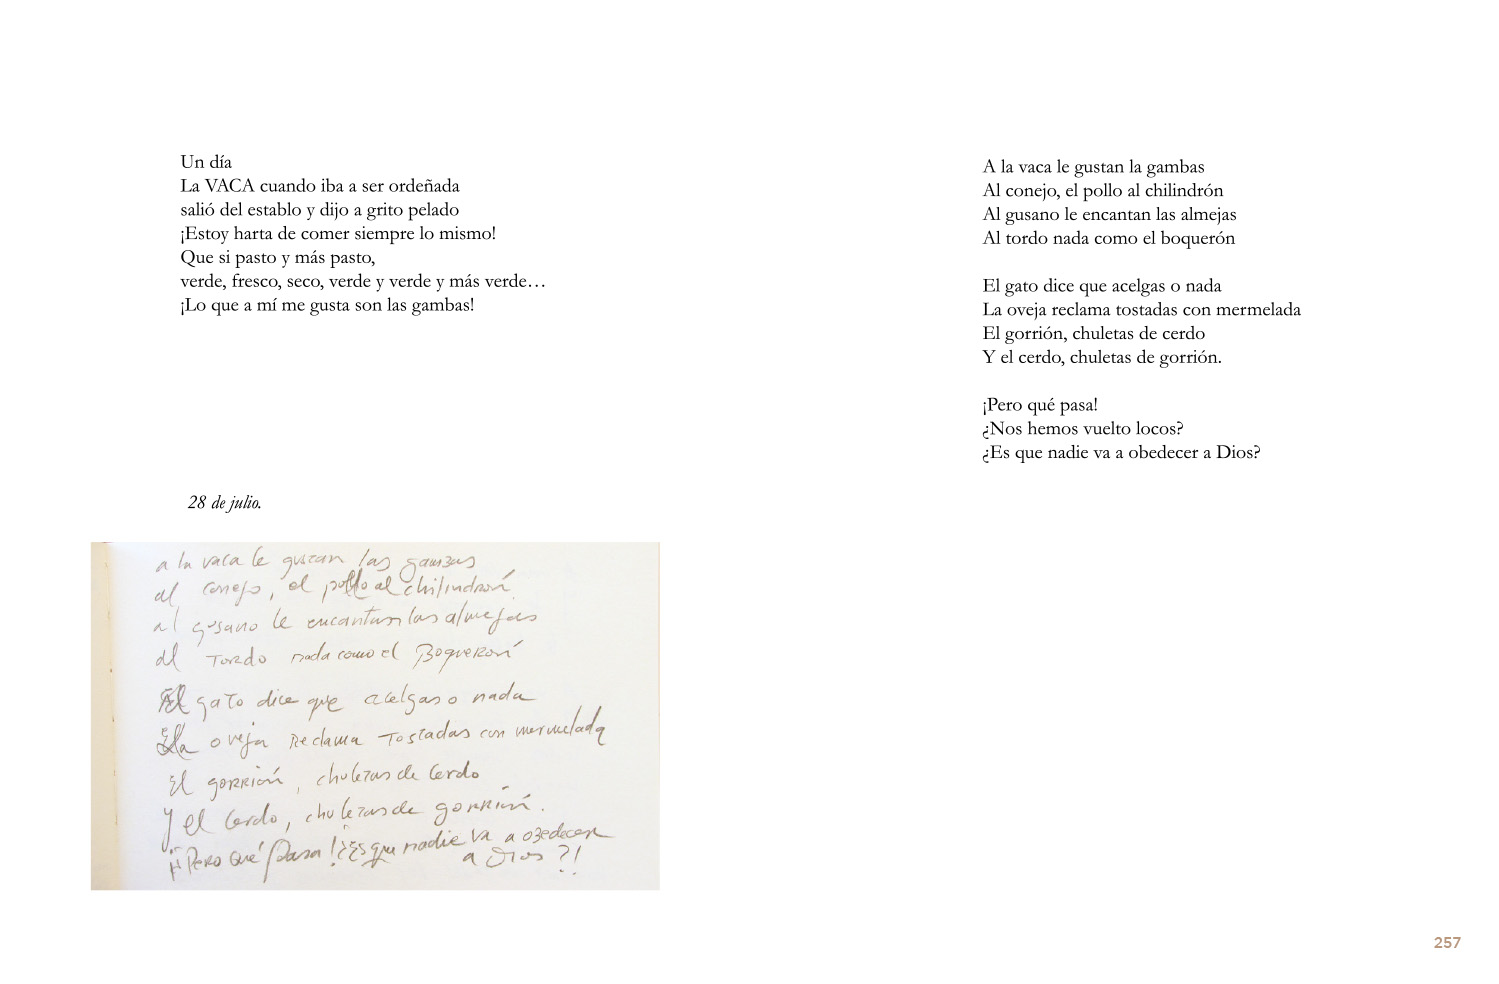 Un día
La VACA cuando iba a ser ordeñada
salió del establo y dijo a grito pelado
¡Estoy harta de comer siempre lo mismo!
Que si pasto y más pasto,
verde, fresco, seco, verde y verde y más verde…
¡Lo que a mí me gusta son las gambas!
28 de julio.
a la vaca le gustan las gambas
al conejo, el pollo al chilindrón
al gusano le encantan las almejas
al tordo nada como el Boquerón
El gato dice que acelgas o nada
La oveja Reclama tostadas con mermelada
El gorrión, chuletas de cerdo
y el cerdo, chuletas de gorrión.
¡¡Pero qué pasa! ¿¿Es que nadie va a obedecer
a Dios?!
A la vaca le gustan la gambas
Al conejo, el pollo al chilindrón
Al gusano le encantan las almejas
Al tordo nada como el boquerón
El gato dice que acelgas o nada
La oveja reclama tostadas con mermelada
El gorrión, chuletas de cerdo
Y el cerdo, chuletas de gorrión.
¡Pero qué pasa!
¿Nos hemos vuelto locos?
¿Es que nadie va a obedecer a Dios?
257